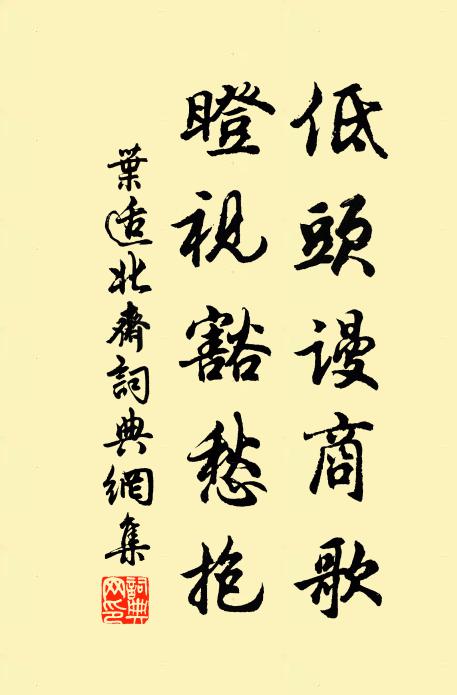 低頭謾商歌
瞪視豁愁抱
葉适北齋詞典網集
詞典網印